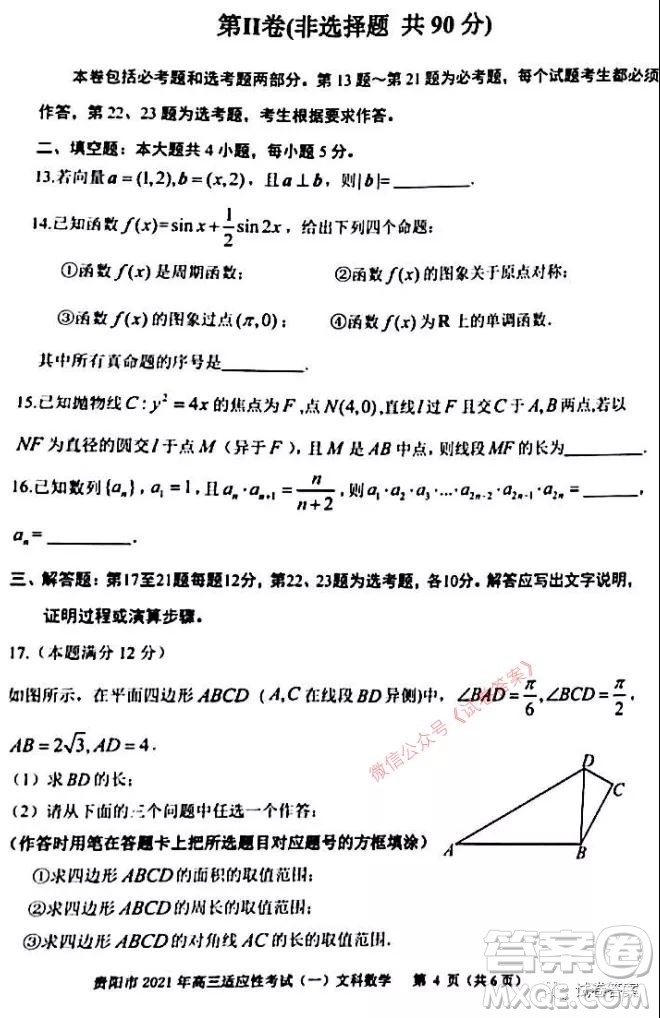 第II卷(非选择题 共90分)
本卷包括必考题和选考题两部分。第13题～第21题为必考题，每个试题考生都必须
作答，第22、23题为选考题，考生根据要求作答。
二、填空题：本大题共4小题，每小题5分。
13.若向量a=(1,2),b=(x,2)，且a⊥b，则|b|=________.
14.已知函数f(x)=sin x+1/2 sin 2x，给出下列四个命题：
①函数f(x)是周期函数； ②函数f(x)的图象关于原点对称；
③函数f(x)的图象过点(π,0)； ④函数f(x)为R上的单调函数.
其中所有真命题的序号是________.
15.已知抛物线C:y²=4x的焦点为F,点N(4,0),直线l过F且交C于A,B两点,若以
NF为直径的圆交l于点M（异于F），且M是AB中点，则线段MF的长为________.
16.已知数列{aₙ}, a₁=1，且aₙ·aₙ₊₁=n/(n+2)，则a₁·a₂·a₃·…·a₂ₙ₋₂·a₂ₙ₋₁·a₂ₙ=______，
aₙ=________.
三、解答题：第17至21题每题12分，第22、23题为选考题，各10分。解答应写出文字说明，
证明过程或演算步骤。
17.（本题满分12分）
如图所示，在平面四边形ABCD（A,C在线段BD异侧)中，∠BAD=π/6,∠BCD=π/2,
AB=2√3,AD=4.
（1）求BD的长；
（2）请从下面的三个问题中任选一个作答：
（作答时用笔在答题卡上把所选题目对应题号的方框填涂）
①求四边形ABCD的面积的取值范围；
②求四边形ABCD的周长的取值范围；
③求四边形ABCD的对角线AC的长的取值范围.
A B C D
微信公众号《试卷答案》
贵阳市2021年高三适应性考试（一）文科数学 第4页（共6页）
答案圈
MXQE.COM
试卷答案